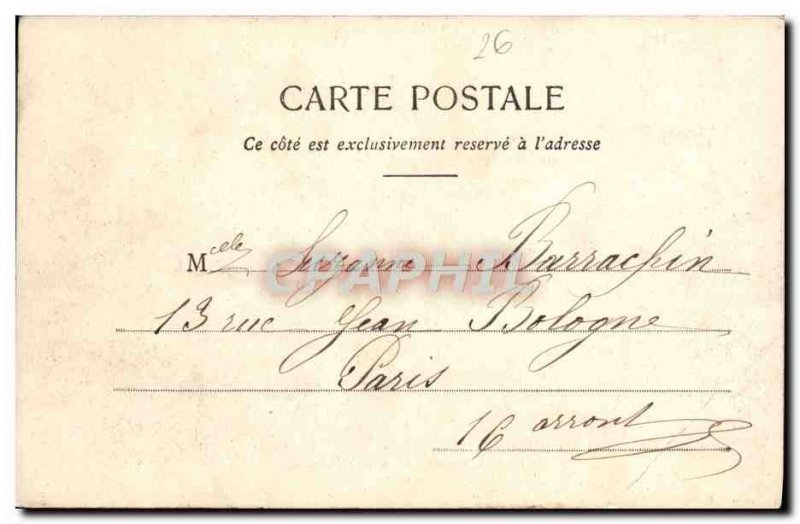 26
CARTE POSTALE
Ce côté est exclusivement reservé à l'adresse
Melle Suzanne Barrachin
CPAPHIL
13 rue Jean Bologne
Paris
16 arront